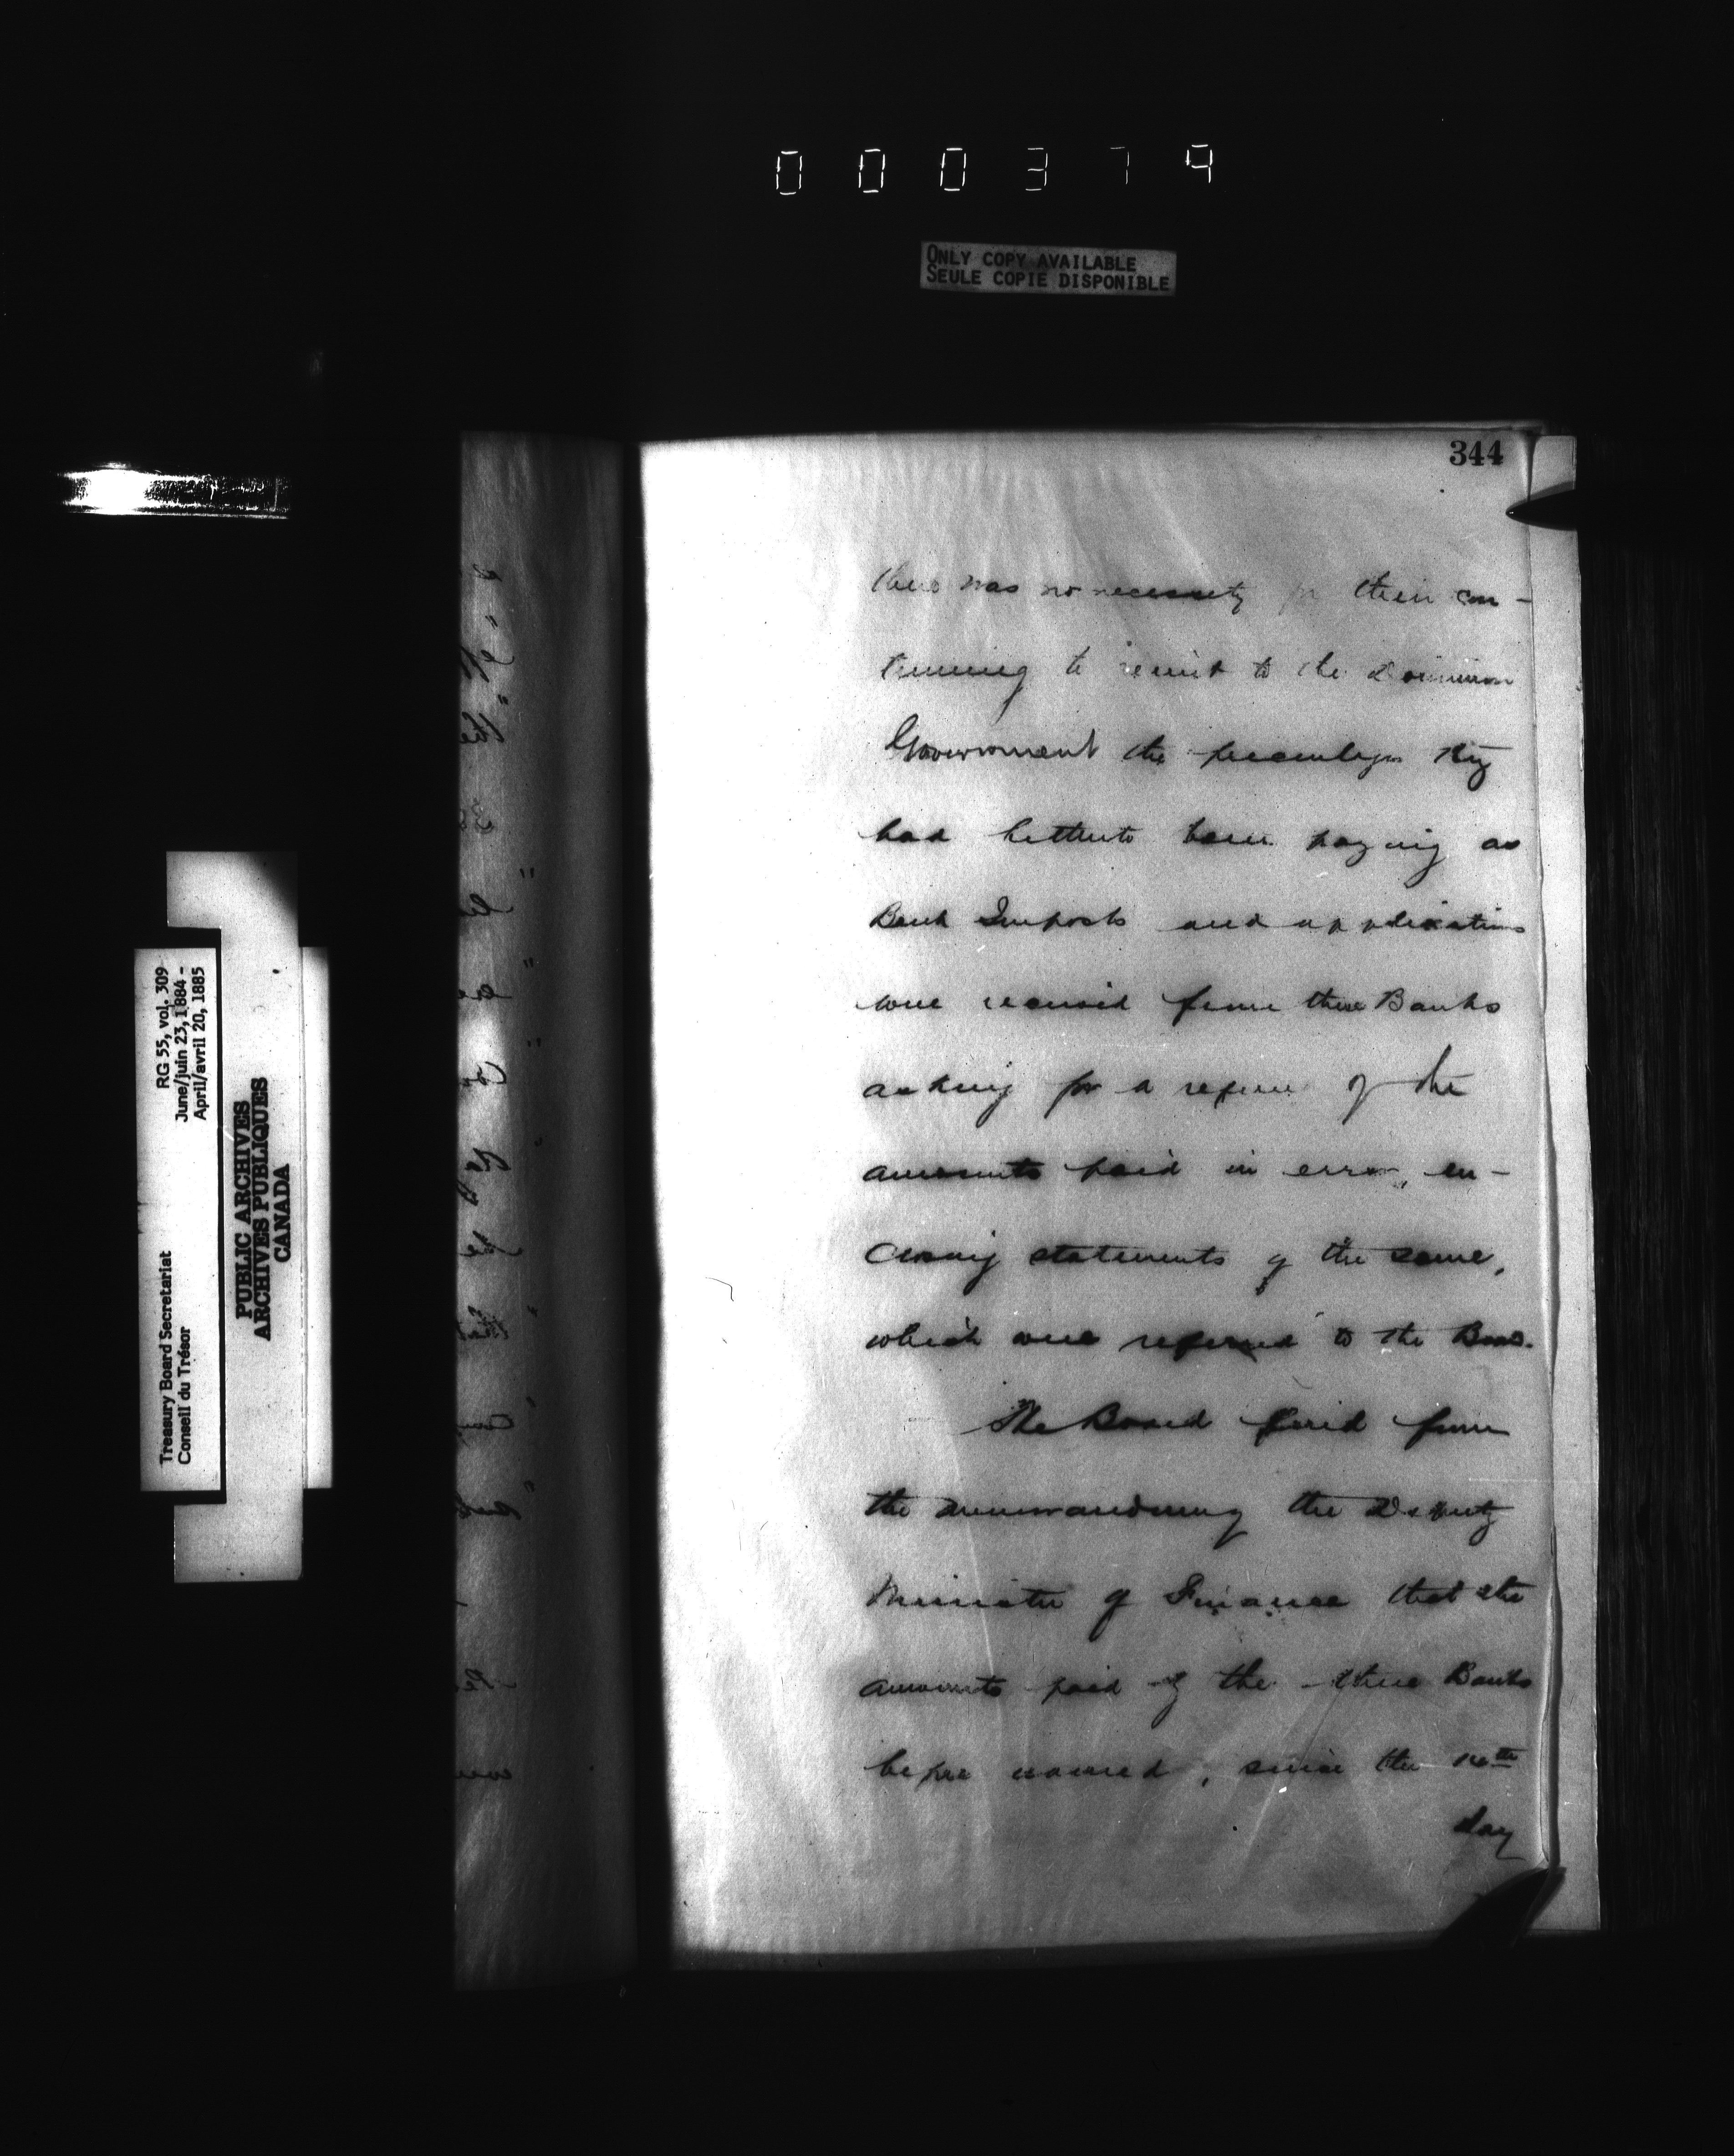 000379
ONLY COPY AVAILABLE
SEULE COPIE DISPONIBLE
344
there was no necessity for their con-
tinuing to remit to the Dominion
Government the percentages they
had hitherto been paying as
Bank Imposts and applications
were received from these Banks
asking for a refund of the
amounts paid in error, en-
closing statements of the same,
which were referred to the Board.
The Board find from
the memorandum of the Deputy
Minister of Finance that the
amounts paid by the three Banks
before named, since the
day
RG 55, vol. 309
June/juin 23, 1884 -
April/avril 20, 1885
Treasury Board Secretariat
Conseil du Trésor
PUBLIC ARCHIVES
ARCHIVES PUBLIQUES
CANADA